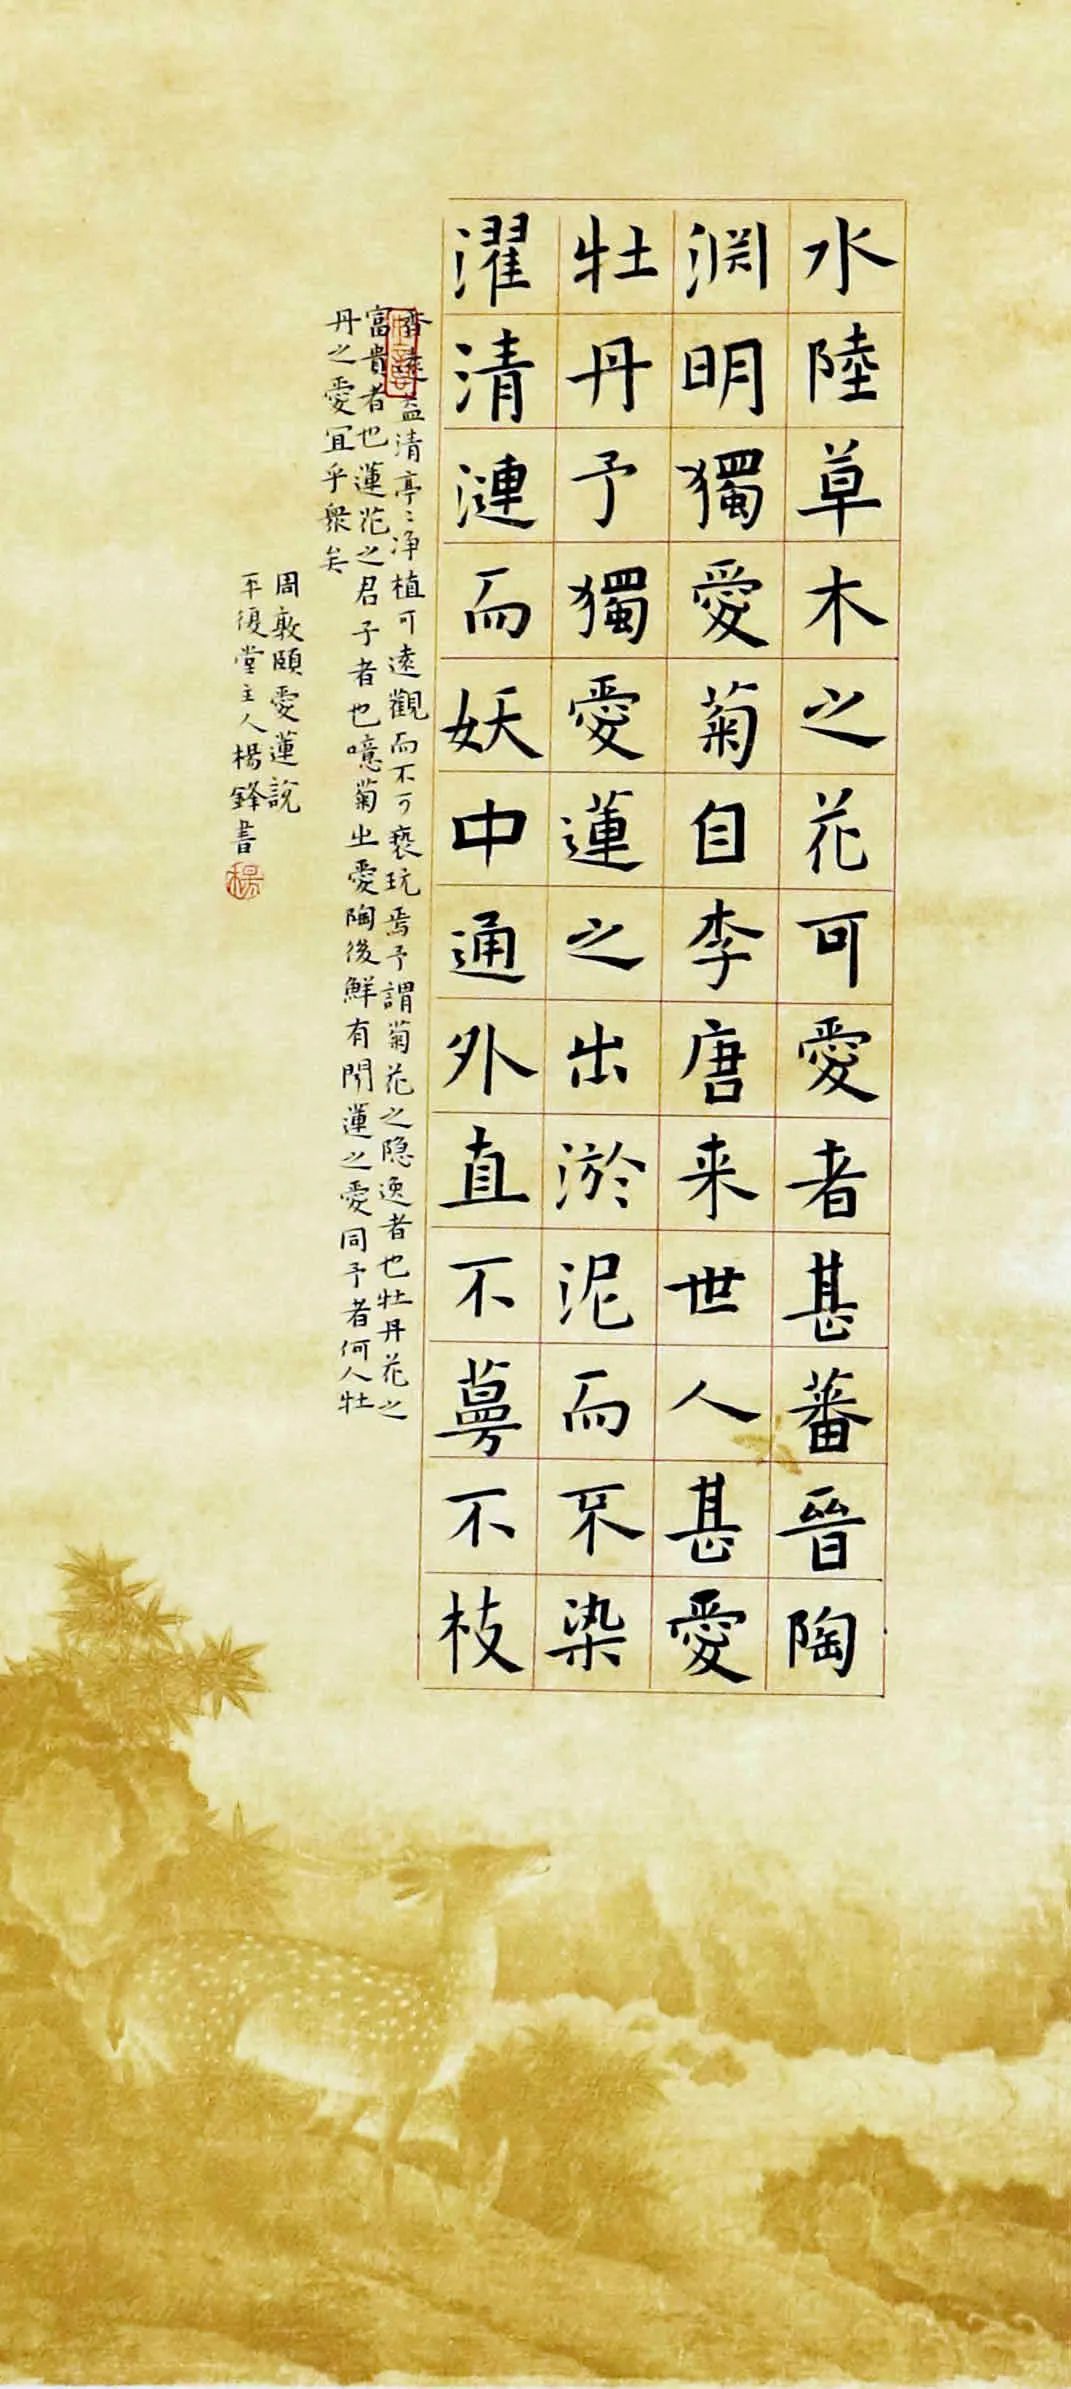 水陸草木之花可愛者甚蕃晉陶
渕明獨愛菊自李唐来世人甚愛
牡丹予獨愛蓮之出淤泥而不染
濯清漣而妖中通外直不蔓不枝
香遠益清亭〻净植可遠觀而不可褻玩焉予謂菊花之隐逸者也牡丹花之
富貴者也蓮花之君子者也噫菊之愛陶後鮮有聞蓮之愛同予者何人牡
丹之愛宜乎衆矣
周敦頤愛蓮說
平復堂主人楊鋒書
楊